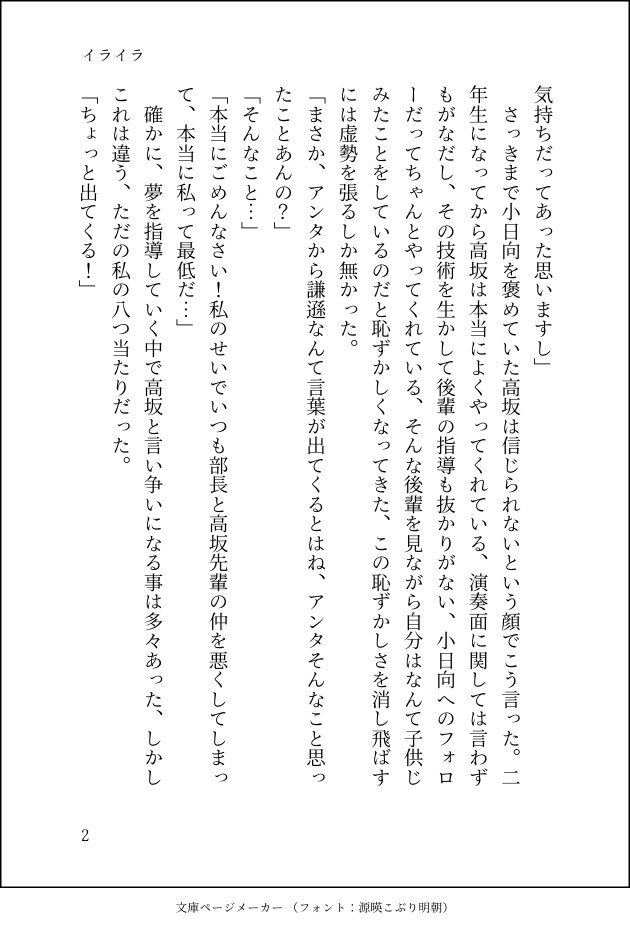 イライラ
気持ちだってあった思いますし」
さっきまで小日向を褒めていた高坂は信じられないという顔でこう言った。二
年生になってから高坂は本当によくやってくれている、演奏面に関しては言わず
もがなだし、その技術を生かして後輩の指導も抜かりがない、小日向へのフォロ
ーだってちゃんとやってくれている、そんな後輩を見ながら自分はなんて子供じ
みたことをしているのだと恥ずかしくなってきた、この恥ずかしさを消し飛ばす
には虚勢を張るしか無かった。
「まさか、アンタから謙遜なんて言葉が出てくるとはね、アンタそんなこと思っ
たことあんの？」
「そんなこと…」
「本当にごめんなさい！私のせいでいつも部長と高坂先輩の仲を悪くしてしまっ
て、本当に私って最低だ…」
確かに、夢を指導していく中で高坂と言い争いになる事は多々あった、しかし
これは違う、ただの私の八つ当たりだった。
「ちょっと出てくる！」
2
文庫ページメーカー （フォント：源暎こぶり明朝）